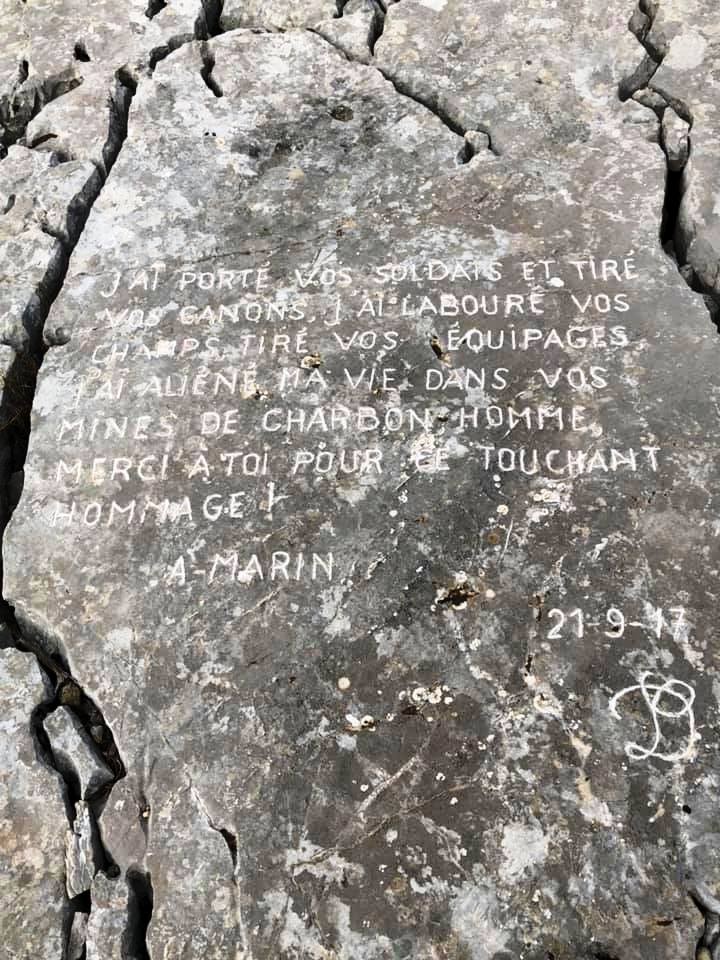 J'AI PORTÉ VOS SOLDATS ET TIRÉ
VOS CANONS. J'AI LABOURÉ VOS
CHAMPS, TIRÉ VOS ÉQUIPAGES,
J'AI ALIÉNÉ MA VIE DANS VOS
MINES DE CHARBON. HOMME,
MERCI À TOI POUR CE TOUCHANT
HOMMAGE !
A-MARIN
21-9-17